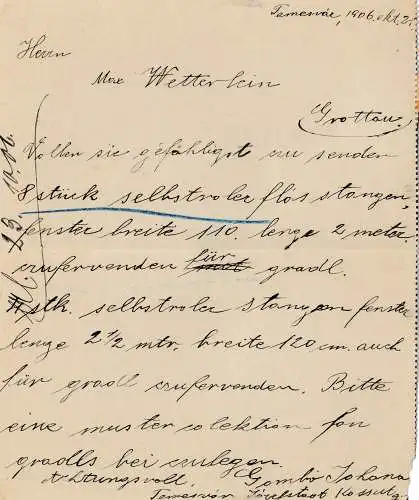 Temesvár, 1906. okt. 2
Herrn
Max Wetterlein
Grottau.
Vollen sie gefähligst zu senden
8 stück selbstroler flos stangen,
fenster breite 110. lenge 2 meter
zufervenden für gradl.
4 stk. selbstroler stangen fenster
lenge 2 1/2 mtr. breite 120 cm. auch
für gradl zufervenden. Bitte
eine muster colektion fon
gradls bei zulegen.
Achtungsvoll. Gombó Johana
Temesvár